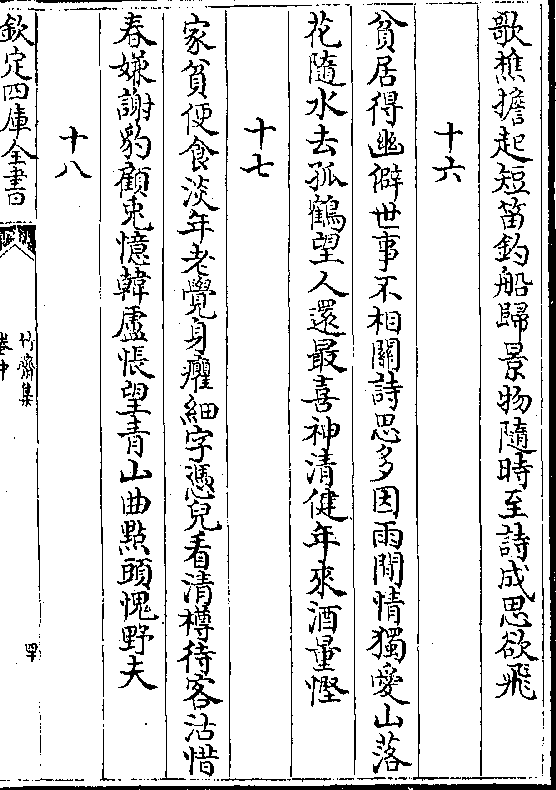 歌樵擔起短笛釣船歸景物隨時至詩成思欲飛
十六
貧居得幽僻世事不相關詩思多因雨閒情獨愛山落
花隨水去孤鶴望人還最喜神清健年來酒量慳
十七
家貧便食淡年老覺身癯細字憑兒看清樽待客沽惜
春嫌謝豹顧兎憶韓盧悵望青山曲點頭愧野夫
十八
欽定四庫全書
竹齋集
卷中